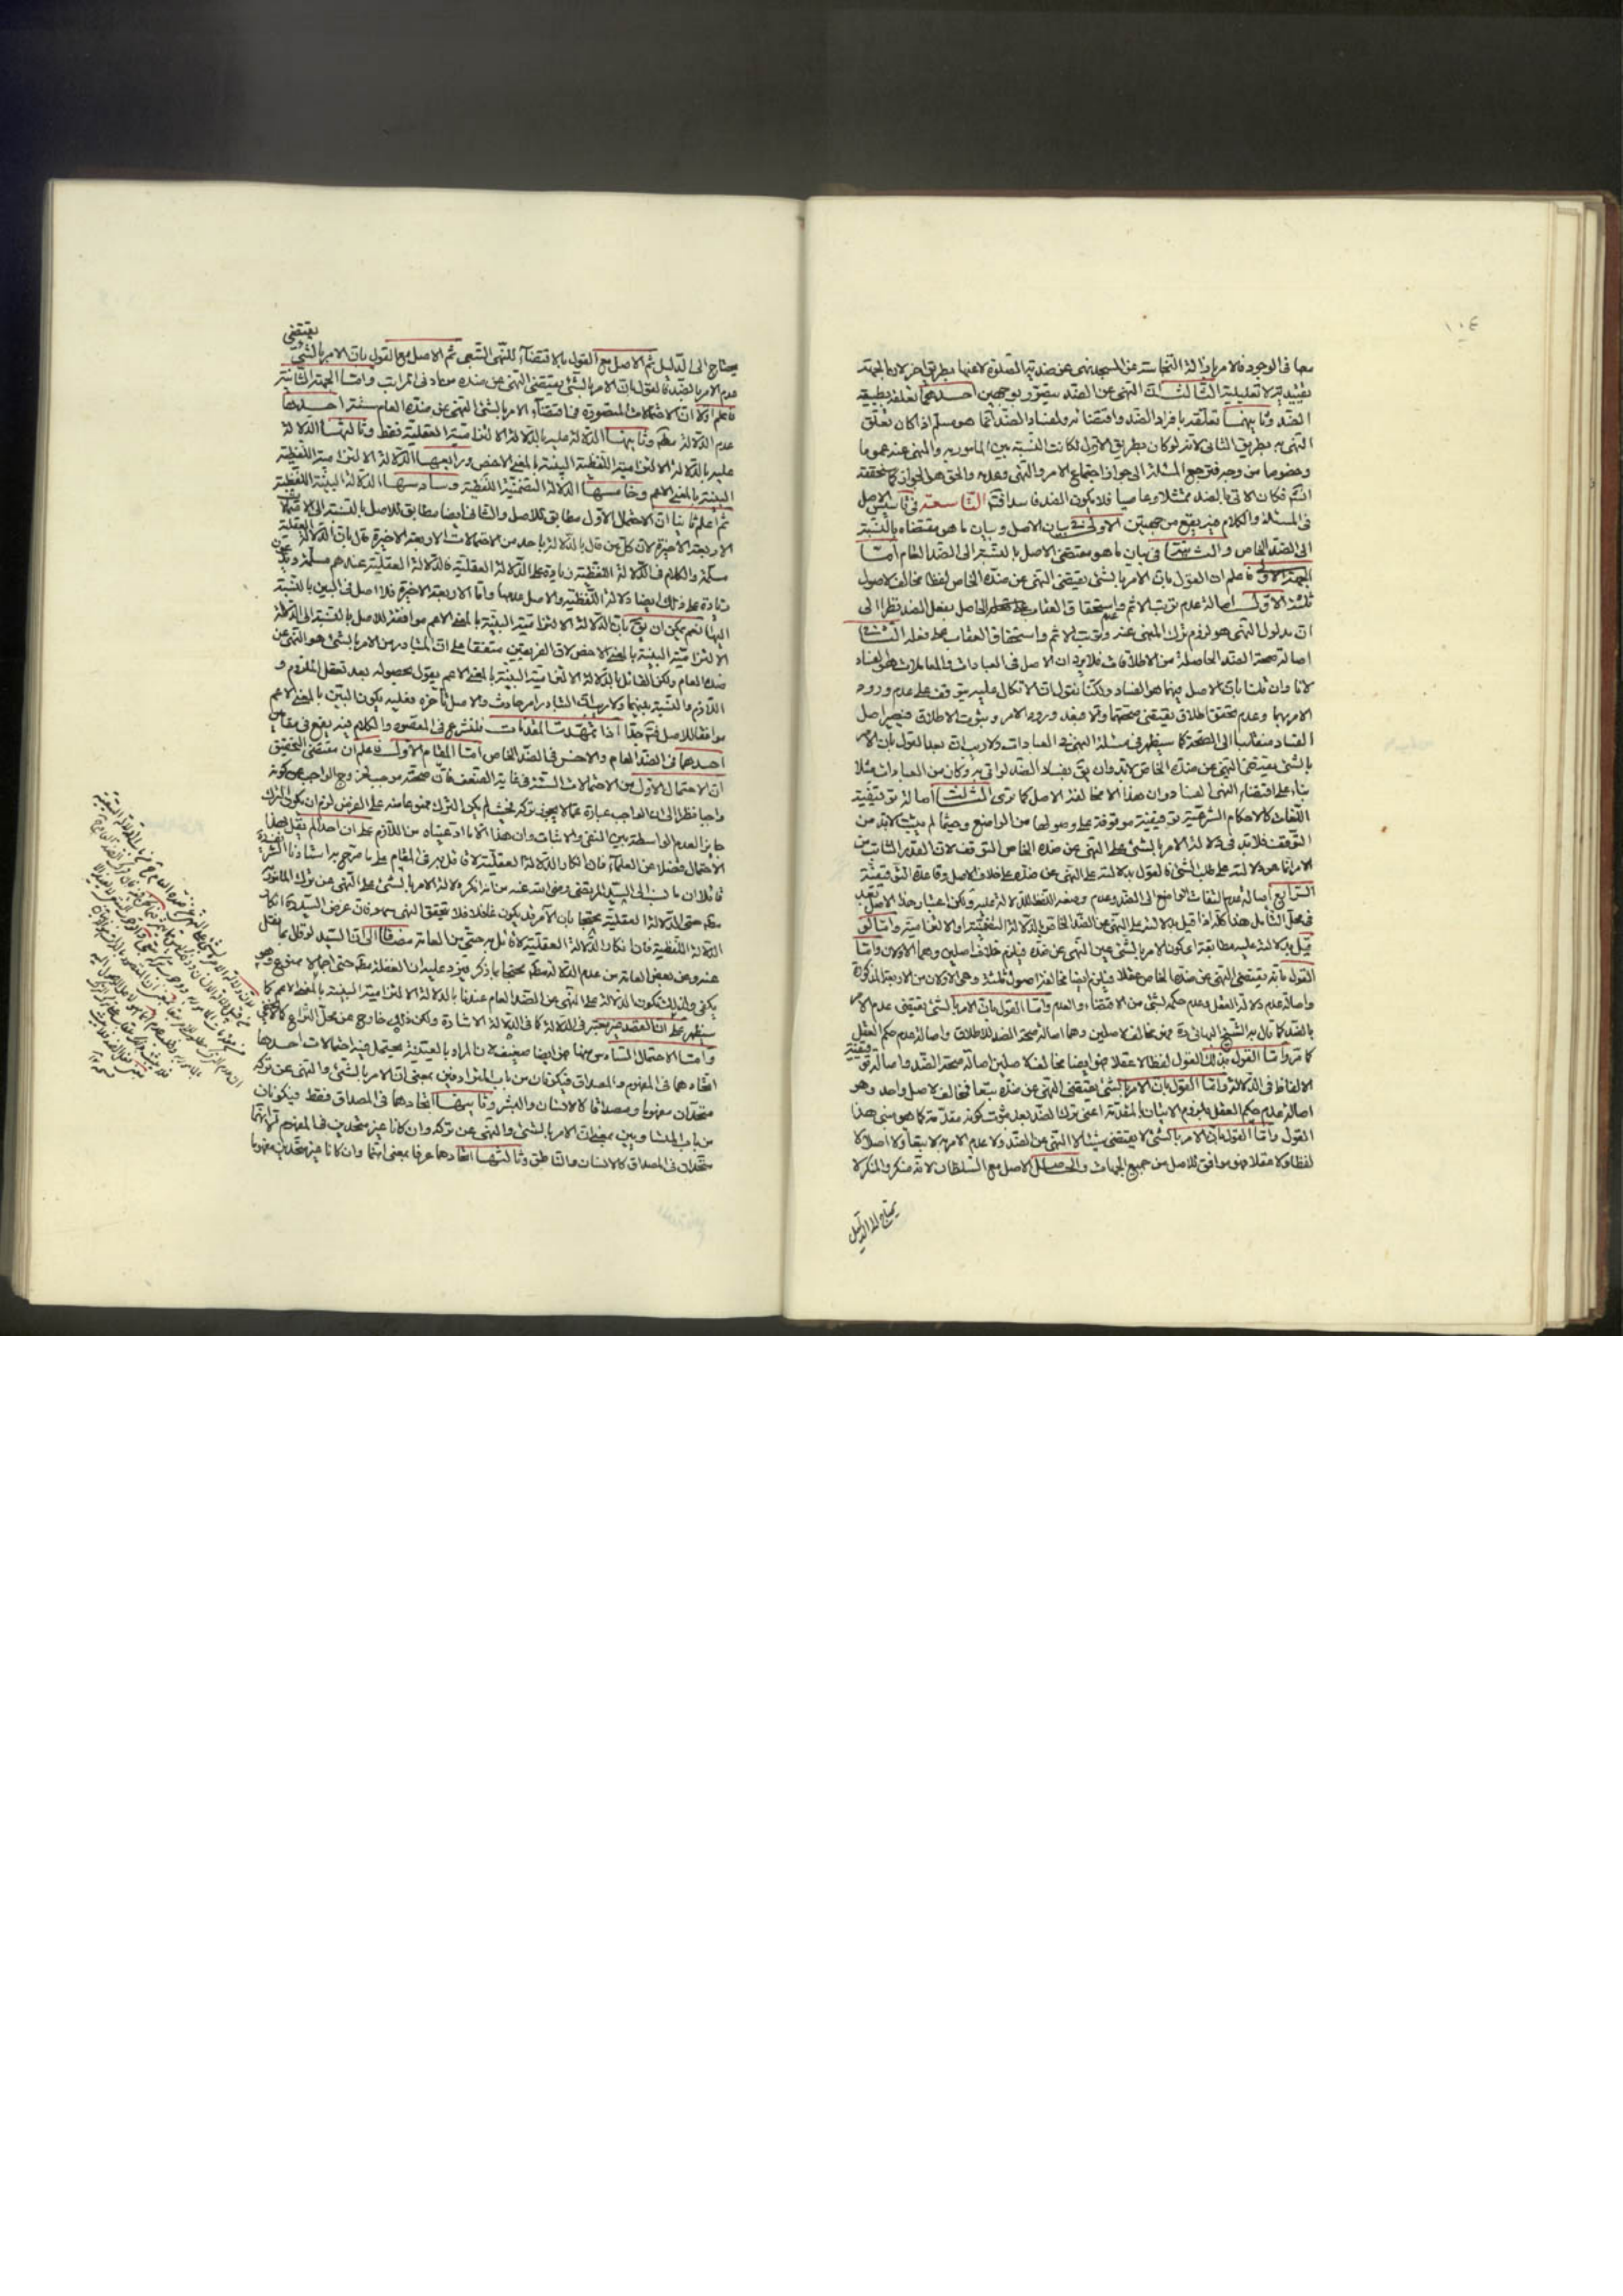 ١٠٤
معا فى الوجود فالامر بازالة النجاسة عن المسجد نهى عن ضديته الصلوة لا عنها بطريق اخر لان الجهة
تقييدية لا تعليلية الثالث ان النهى عن الضد يتصور بوجهين احدهما تعلقه بطبيعة
الضد وثانيهما تعلقه بافراد الضد واقتضائه لفساد الضد انما هو مسلم اذا كان تعلق
النهى به بطريق الثانى لانه لو كان بطريق الاول لكانت النسبة بين المأمور به والمنهى عنه عموما
وخصوصا من وجه فترجع المسئلة الى جواز اجتماع الامر والنهى وعدمه والحق هو الجواز كما ستحققه
انشاء فكان الاتى بالضد ممتثلا وعاصيا فلا يكون الضد فاسدا فتم التاسعة فى تأسيس الاصل
فى المسئلة والكلام فيه يقع من جهتين الاولى فى بيان الاصل وبيان ما هو مقتضاه بالنسبة
الى الضد الخاص والثانية فى بيان ما هو مقتضى الاصل بالنسبة الى الضد العام امّا
الجهة الاولى فاعلم ان القول بان الامر بالشئ يقتضى النهى عن ضده الخاص لفظا مخالف لاصول
ثلثة الاول اصالة عدم ترتب الاثم واستحقاق العقاب على الحاصل بفعل الضد نظرا الى
ان مدلول النهى هو لزوم ترك المنهى عنه وترتب الاثم واستحقاق العقاب على فعله الثانى
اصالة صحة الضد الحاصلة من الاطلاقات فلا يرد ان الاصل فى العبادات والمعاملات هو الفساد
لانا وان قلنا بان الاصل فيهما هو الفساد ولكنا نقول ان الاتكال عليه يتوقف على عدم ورود
الامر بهما وعدم تحقق اطلاق يقتضى صحتهما والا فبعد ورود الامر وثبوت الاطلاق فيصير اصل
الفساد منقلبا الى الصحة كما سيظهر فى مسئلة النهى فى العبادات ولا ريب ان بعد القول بان الامر
بالشئ يقتضى النهى عن ضده الخاص لابد وان يق بفساد الضد لو اتى به وكان من العبادات مثلا
بناء على اقتضاء النهى الفساد وان هذا الا مخالفة الاصل كما ترى الثالث اصالة توقيفية
اللغات كالاحكام الشرعية توقيفية موقوفة على وصولها من الواضع وحيثما لم يثبت لابد من
التوقف فلابد فى دلالة الامر بالشئ على النهى عن ضده الخاص التوقف لان القدر الثابت من
الامر انما هو دلالته على طلب الشئ فالقول بدلالته على النهى عن ضده على خلاف الاصل وقاعدة التوقيفية
الرابع اصالة عدم التفات الواضع الى الضد وعدم وضعه اللفظ للدلالة عليه ولكن اعتبار هذا الاصل بعد
فى محل التأمل هذا كله اذا قيل بدلالته على النهى عن الضد الخاص بالدلالة التضمنية او الالتزامية واما لو
قيل بدلالته عليه مطابقة بكون الامر بالشئ عين النهى عن ضده فيلزم خلاف اصلين وهما الاولان وامّا
القول بانه يقتضى النهى عن ضدها الخاص عقلا فيلزم ايضا مخالفة اصول ثلثة وهى الاولان من الاربعة المذكورة
واصالة عدم دلالة العقل وعدم حكمه بشئ من الاقتضاء والعدم وامّا القول بان الامر بالشئ يقتضى عدم الامر
بالضد كما قال به الشيخ البهائى ره فهو مخالف لاصلين وهما اصالة صحة الضد للاطلاق واصالة عدم حكم العقل
كما مر وامّا القول بذلك القول لفظا لا عقلا فهو ايضا مخالف لاصلين اصالة صحة الضد واصالة توقيفية
الالفاظ فى الدلالة وامّا القول بان الامر بالشئ يقتضى النهى عن ضده تبعا فمخالف لاصل واحد وهو
اصالة عدم حكم العقل بلزوم الاتيان بالمقدمة اعنى ترك الضد بعد ثبوت كونه مقدمة كما هو مبنى هذا
القول وامّا القول بان الامر بالشئ لا يقتضى شيئا لا النهى عن الضد ولا عدم الامر به لا تبعا ولا اصلا لا
لفظا ولا عقلا فهو موافق للاصل من جميع الجهات والحاصل الاصل مع السلطان لانه منكر والمنكر لا
يحتاج الى الدليل
يقتضى
يحتاج الى الدليل ثم الاصل مع القول بالاقتضاء للنهى التبعى ثم الاصل مع القول بان الامر بالشئ
عدم الامر بالضد فالقول بان الامر بالشئ يقتضى النهى عن ضده وامّا الجهة الثانية
فاعلم اولا ان الاحتمالات المتصورة فى اقتضاء الامر بالشئ النهى عن ضده العام ستة احدها
عدم الدلالة مطم وثانيها الدلالة عليه بالدلالة الالتزامية العقلية فقط وثالثها الدلالة
عليه بالدلالة الالتزامية اللفظية البينة بالمعنى الاخص ورابعها الدلالة الالتزامية اللفظية
البينة بالمعنى الاعم وخامسها الدلالة التضمنية اللفظية وسادسها الدلالة البينة اللفظية
ثم اعلم ثانيا ان الاحتمال الاول مطابق للاصل والثانى ايضا مطابق للاصل بالنسبة الى الاحتمالات
الاربعة الاخيرة لان كل من قال بالدلالة باحد من الاحتمالات الاربعة الاخيرة قال بان الدلالة العقلية
مسلمة والكلام فى الدلالة اللفظية زيادة على الدلالة العقلية فالدلالة العقلية عندهم مسلمة ويدعون
زيادة على ذلك ايضا دلالة اللفظية والاصل عدمها وامّا الاربعة الاخيرة فلا اصل فى البين بالنسبة
اليها نعم يمكن ان يق بان الدلالة الالتزامية البينة بالمعنى الاعم موافقة للاصل بالنسبة الى الدلالة
الالتزامية البينة بالمعنى الاخص لان الفريقين متفقا على ان المتبادر من الامر بالشئ هو النهى عن
ضده العام ولكن القائل بالدلالة الالتزامية البينة بالمعنى الاعم يقول بحصوله بعد تعقل الملزوم و
اللازم والنسبة بينهما ولا ريب ان التبادر امر حادث والاصل تأخره فعليه يكون البين بالمعنى الاعم
موافقا للاصل فتم جدا اذا تمهدت المقدمات فلنشرع فى المقصود والكلام فيه يقع فى مقامين
احدهما فى الضد العام والاخر فى الضد الخاص امّا المقام الاول فاعلم ان مقتضى التحقيق
ان الاحتمال الاول من الاحتمالات الستة فى غاية الضعف فان صحته موجب لخروج الواجب عن كونه
واجبا نظرا الى ان الواجب عبارة عما لا يجوز تركه فحيث لم يكن الترك ممنوعا منه على الفرض لزم ان يكون الترك
جايزا لعدم الواسطة بين النفى والاثبات وان هذا الا ما ادعيناه من اللازم على ان احدا لم يقل بهذا
الاحتمال فضلا عن العلماء فان انكار الدلالة العقلية لا قائل به فى المقام على ما صرح به استادنا الشريف
قائلا ان ما نسب الى السيد المرتضى رضى الله عنه من انه انكر دلالة الامر بالشئ على النهى عن ترك المأمور به
مطم حتى الدلالة العقلية محتجا بان الآمر قد يكون غافلا فلا يتحقق النهى سهو فان غرض السيد ره انكار
الدلالة اللفظية فان انكار الدلالة العقلية لا قائل به حتى من العامة مضافا الى ان السيد لو قال بما نقل
عنه وعن بعض العامة من عدم الدلالة مطم محتجا بما ذكر فيرد عليه ان الغفلة مطم حتى اجمالا ممنوع وهو
يكفى ولذلك تكون الدلالة على النهى عن الضد العام عندنا بالدلالة الالتزامية البينة بالمعنى الاعم كما
سيظهر على ان القصد غير معتبر فى الدلالة كما فى الدلالة الاشارة ولكن ذلك خارج عن محل النزاع كما لا يخفى
وامّا الاحتمال السادس منها فهو ايضا ضعيف لان المراد بالعينية يحتمل فيه احتمالات احدها
اتحادهما فى المفهوم والمصداق فيكونان من باب المترادفين بمعنى ان الامر بالشئ والنهى عن تركه
متحدان مفهوما ومصداقا كالانسان والبشر وثانيهما اتحادهما فى المصداق فقط فيكونان
من باب المتساويين بمعنى ان الامر بالشئ والنهى عن تركه وان كانا غير متحدين فى المفهوم الا انهما
متحدان فى المصداق كالانسان والناطق وثالثها اتحادهما عرفا بمعنى انهما وان كانا غير متحدين مفهوما